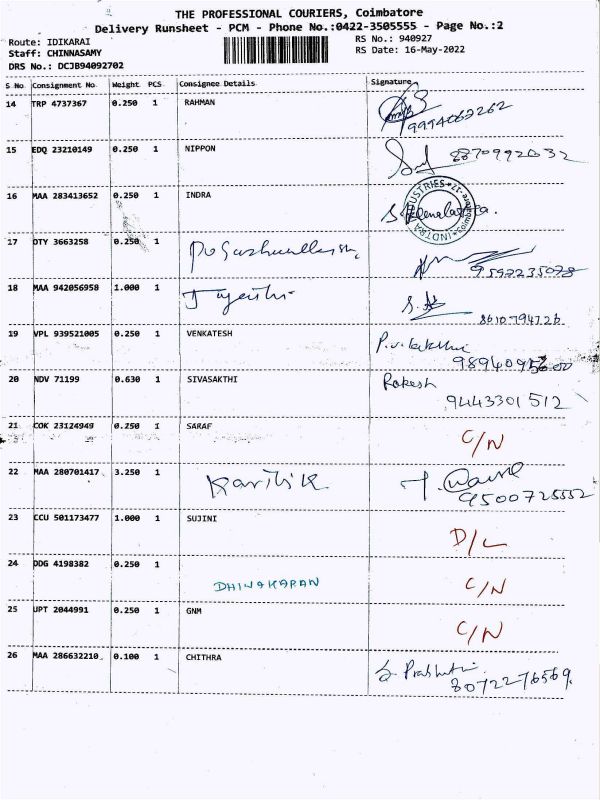 THE PROFESSIONAL COURIERS, Coimbatore
Delivery Runsheet - PCM - Phone No.:0422-3505555 - Page No.:2
Route: IDIKARAI
RS No.: 940927
Staff: CHINNASAMY
RS Date: 16-May-2022
DRS No.: DCJB94092702
S No Consignment No Weight PCS Consignee Details Signature
14 TRP 4737367 0.250 1 RAHMAN
9994062262
15 EDQ 23210149 0.250 1 NIPPON
8870992032
16 MAA 283413652 0.250 1 INDRA
17 DTY 3663258 0.250 1
9592235078
18 MAA 942056958 1.000 1 Jayanthi
8610794726
19 VPL 939521005 0.250 1 VENKATESH
20 NDV 71199 0.630 1 SIVASAKTHI Rakesh
9443301512
21 COK 23124949 0.250 1 SARAF C/N
22 MAA 280701417 3.250 1 Karthik
9500725552
23 CCU 501173477 1.000 1 SUJINI D/L
24 DDG 4198382 0.250 1 DHIVAKARAN C/N
25 UPT 2044991 0.250 1 GNM C/N
26 MAA 286632210 0.100 1 CHITHRA
8072276569